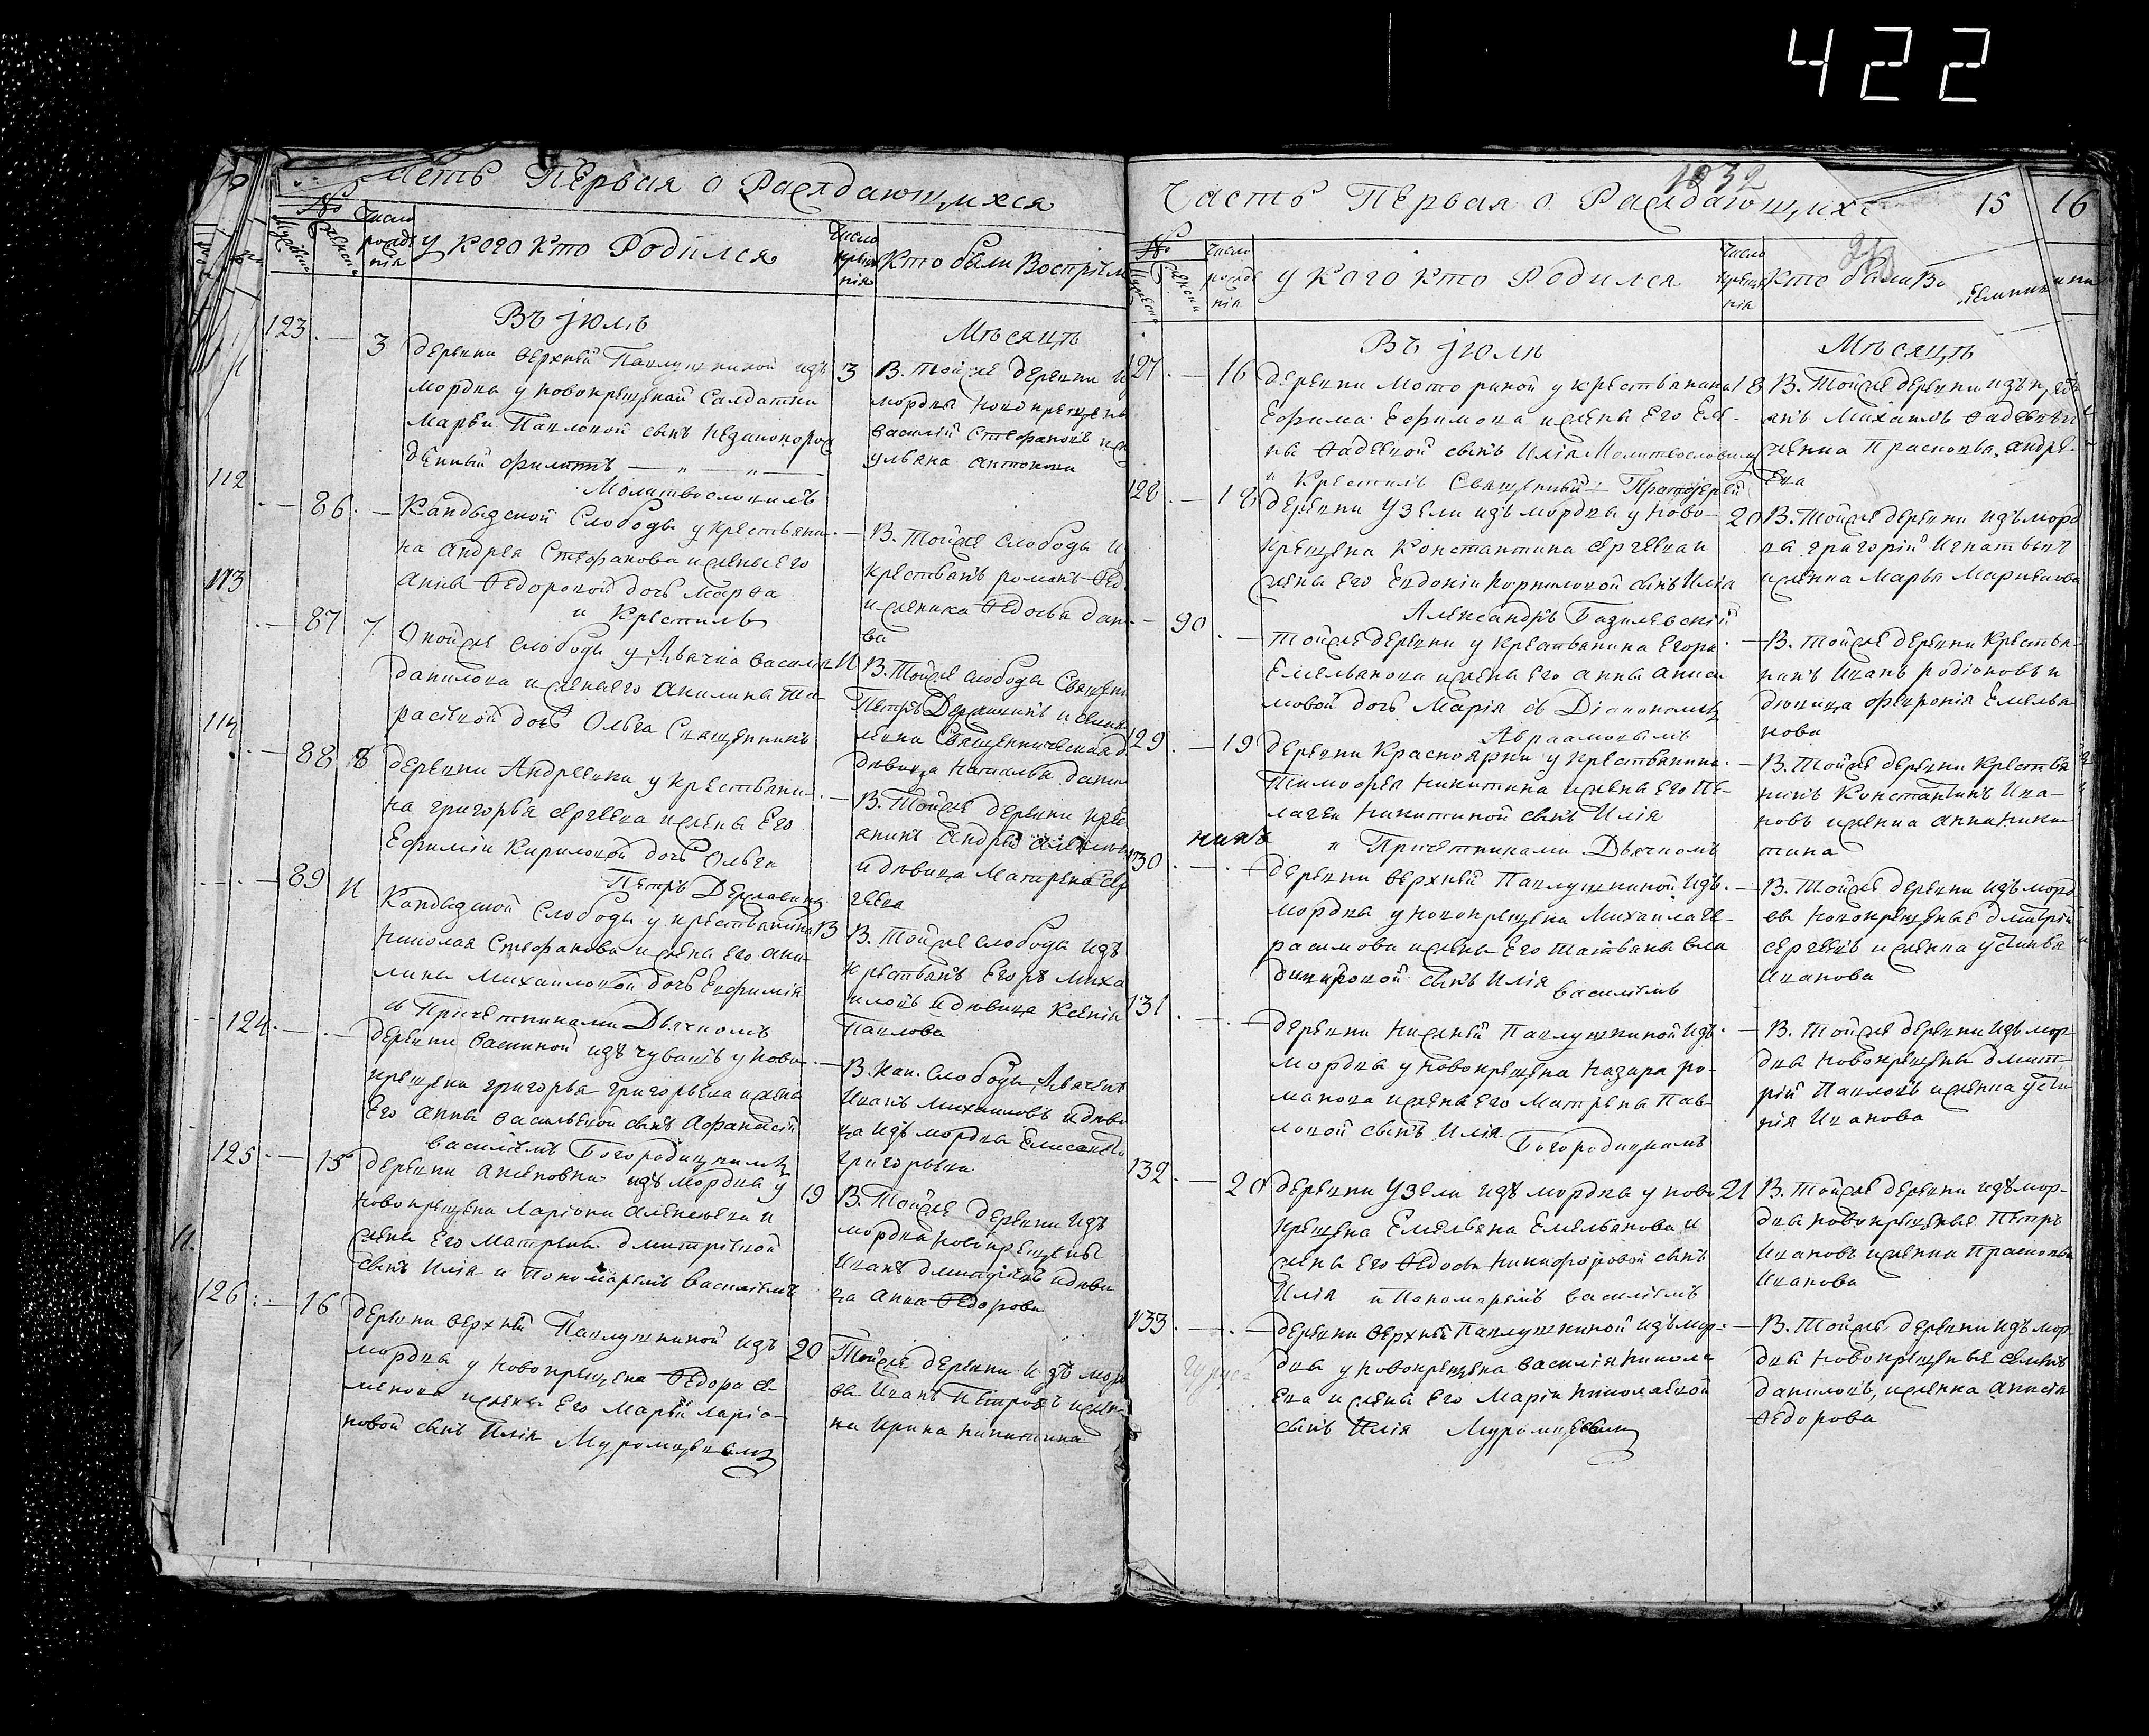 422
Часть Первая о Раждающихся
№
Число рожденія
у кого кто Родился
Число крещенія
Кто были Воспріем
Въ Іюлѣ
Мѣсяцѣ
123 — 3
деревни верхней Павлушкиной изъ
мордвы у новокрещеной Салдатки
Марьи Павловой сынъ незаконорож
денный Филиппъ
3
В. Той же деревни и
мордвы новокрещены
василій Стефановъ и же
ульяна антонова
112
Молитвословилъ
— 86 —
Кандызской Слободы у крестьяни-
на андрея Стефанова и жены Его
анны Ѳедоровой дочь Марѳа
и Крестилъ
В. Той же слободы и
крестьянъ романъ Ѳед
и женка Ѳедосья дани
ва
113
— 87 7
Оной же слободы у Дьячка василья
данилова и жены его акилины та-
расьевой дочь Ольга Священникъ
11
В. Той же слободы Священ
Петръ Державинъ и
Священническая д
дѣвица Наталья дани
114
— 88 8
деревни Андреевки у крестьяни-
на григорья сергеева и жены Его
Ефиміи Кириловой дочь Ольга
Петръ Державинъ
В. Той же деревни крес
янинъ Андрей
и дѣвица Матрена сер
геева
— 89 11
Кандызской слободы у крестьянина
николая Стефанова и жены Его аки-
лины михаиловой дочь Евфимія
съ Причетниками Дьячкомъ
13
В. Той же слободы изъ
крестьянъ Егоръ Миха
иловъ и дѣвица Ксенія
Павлова
124 —
деревни васькиной изъ чувашъ у ново-
крещена григорья григорьева и жены
Его анны васильевой сынъ Афанасій
василіемъ Богородицкимъ
В. Кан. Слободы Дьячекъ
Иванъ михаиловъ и дѣви
ца изъ мордвы Елисавета
григорьева
125 — 15
деревни аксеновки изъ мордвы у
новокрещена Ларіона алексеева и
жены Его матрены дмитріевой
сынъ Илія и Пономаремъ василіемъ
19
В. Той же деревни изъ
мордвы новокрещены
Иванъ дмитріевъ и дѣви
ца анна Ѳедорова
126 — 16
деревни верхней Павлушкиной изъ
мордвы у новокрещена Ѳедора се-
менова и жены Его Марьи ларіо-
новой сынъ Илія Муромцевымъ
20
Той же деревни изъ морд
вы Иванъ Петровъ и жен-
ка Ирина никитина
1832
Часть Первая о Раждающихс
15 16
№
Число рожденія
у кого кто Родился
Число крещенія
кто были Во
Въ Іюлѣ
Мѣсяцѣ
127 — 16
деревни Моториной у крестьянина
Ефима Ефимова и жены Его Еле-
ны Ѳадеевой сынъ Илія Молитвословилъ
и Крестилъ Священный Протоіерей
18
В. Той же деревни изъ крестъ
янъ Михаилъ Ѳадеевъ и
женка Прасковья андре-
ева
128 — 18
деревни Узели изъ мордвы у ново-
крещена Константина сергеева и
жены Его Евдокіи корниловой сынъ Илія
Александръ Базилевскій
20
В. Той же деревни изъ морд
вы григорій Игнатьевъ
и женка Марья Маркелова
— 90 —
той же деревни у крестьянина Егора
Емельянова и жены Его анны аниси
мовой дочь Марія съ Діакономъ
Авраамовымъ
В. Той же деревни крестья-
нинъ Иванъ родіоновъ и
дѣвица Февронія Емелья
нова
129 — 19
деревни Красноярки у крестьянина
Тимофея никитина и жены Его Пе-
лагеи никитиной сынъ Илія
и Причетниками Дьячкомъ
В. Той же деревни крестья
нинъ Константинъ Ива-
новъ и женка анна ники-
тина
130 —
деревни верхней Павлушкиной изъ
мордвы у новокрещена Михаила ге-
расимова и жены Его татьяны вла
димировой сынъ Илія
василіемъ
В. Той же деревни изъ морд
вы новокрещеные дмитрій
сергеевъ и женка устинья
Иванова
131 —
деревни нижней Павлушкиной изъ
мордвы у новокрещена Назара ро-
манова и жены Его Матрены Пав-
ловой сынъ Илія
Богородицкимъ
В. Той же деревни изъ мор
двы новокрещены дмит-
рій Павловъ и женка усти
нія Иванова
132 — 20
деревни Узели изъ мордвы у ново
крещена Емельяна Емельянова и
жены Его Ѳедосьи никифоровой сынъ
Илія и Пономаремъ василіемъ
21
В. Той же деревни изъ мор-
двы новокрещеные Петръ
Ивановъ и женка Прасковья
Иванова
133 —
деревни верхней Павлушкиной изъ мор-
двы у новокрещена василія никола
ева и жены Его Маріи николаевой
сынъ Илія Муромцевымъ
В. Той же деревни изъ мор
двы новокрещеные семенъ
даниловъ, и женка анисія
Ѳедорова